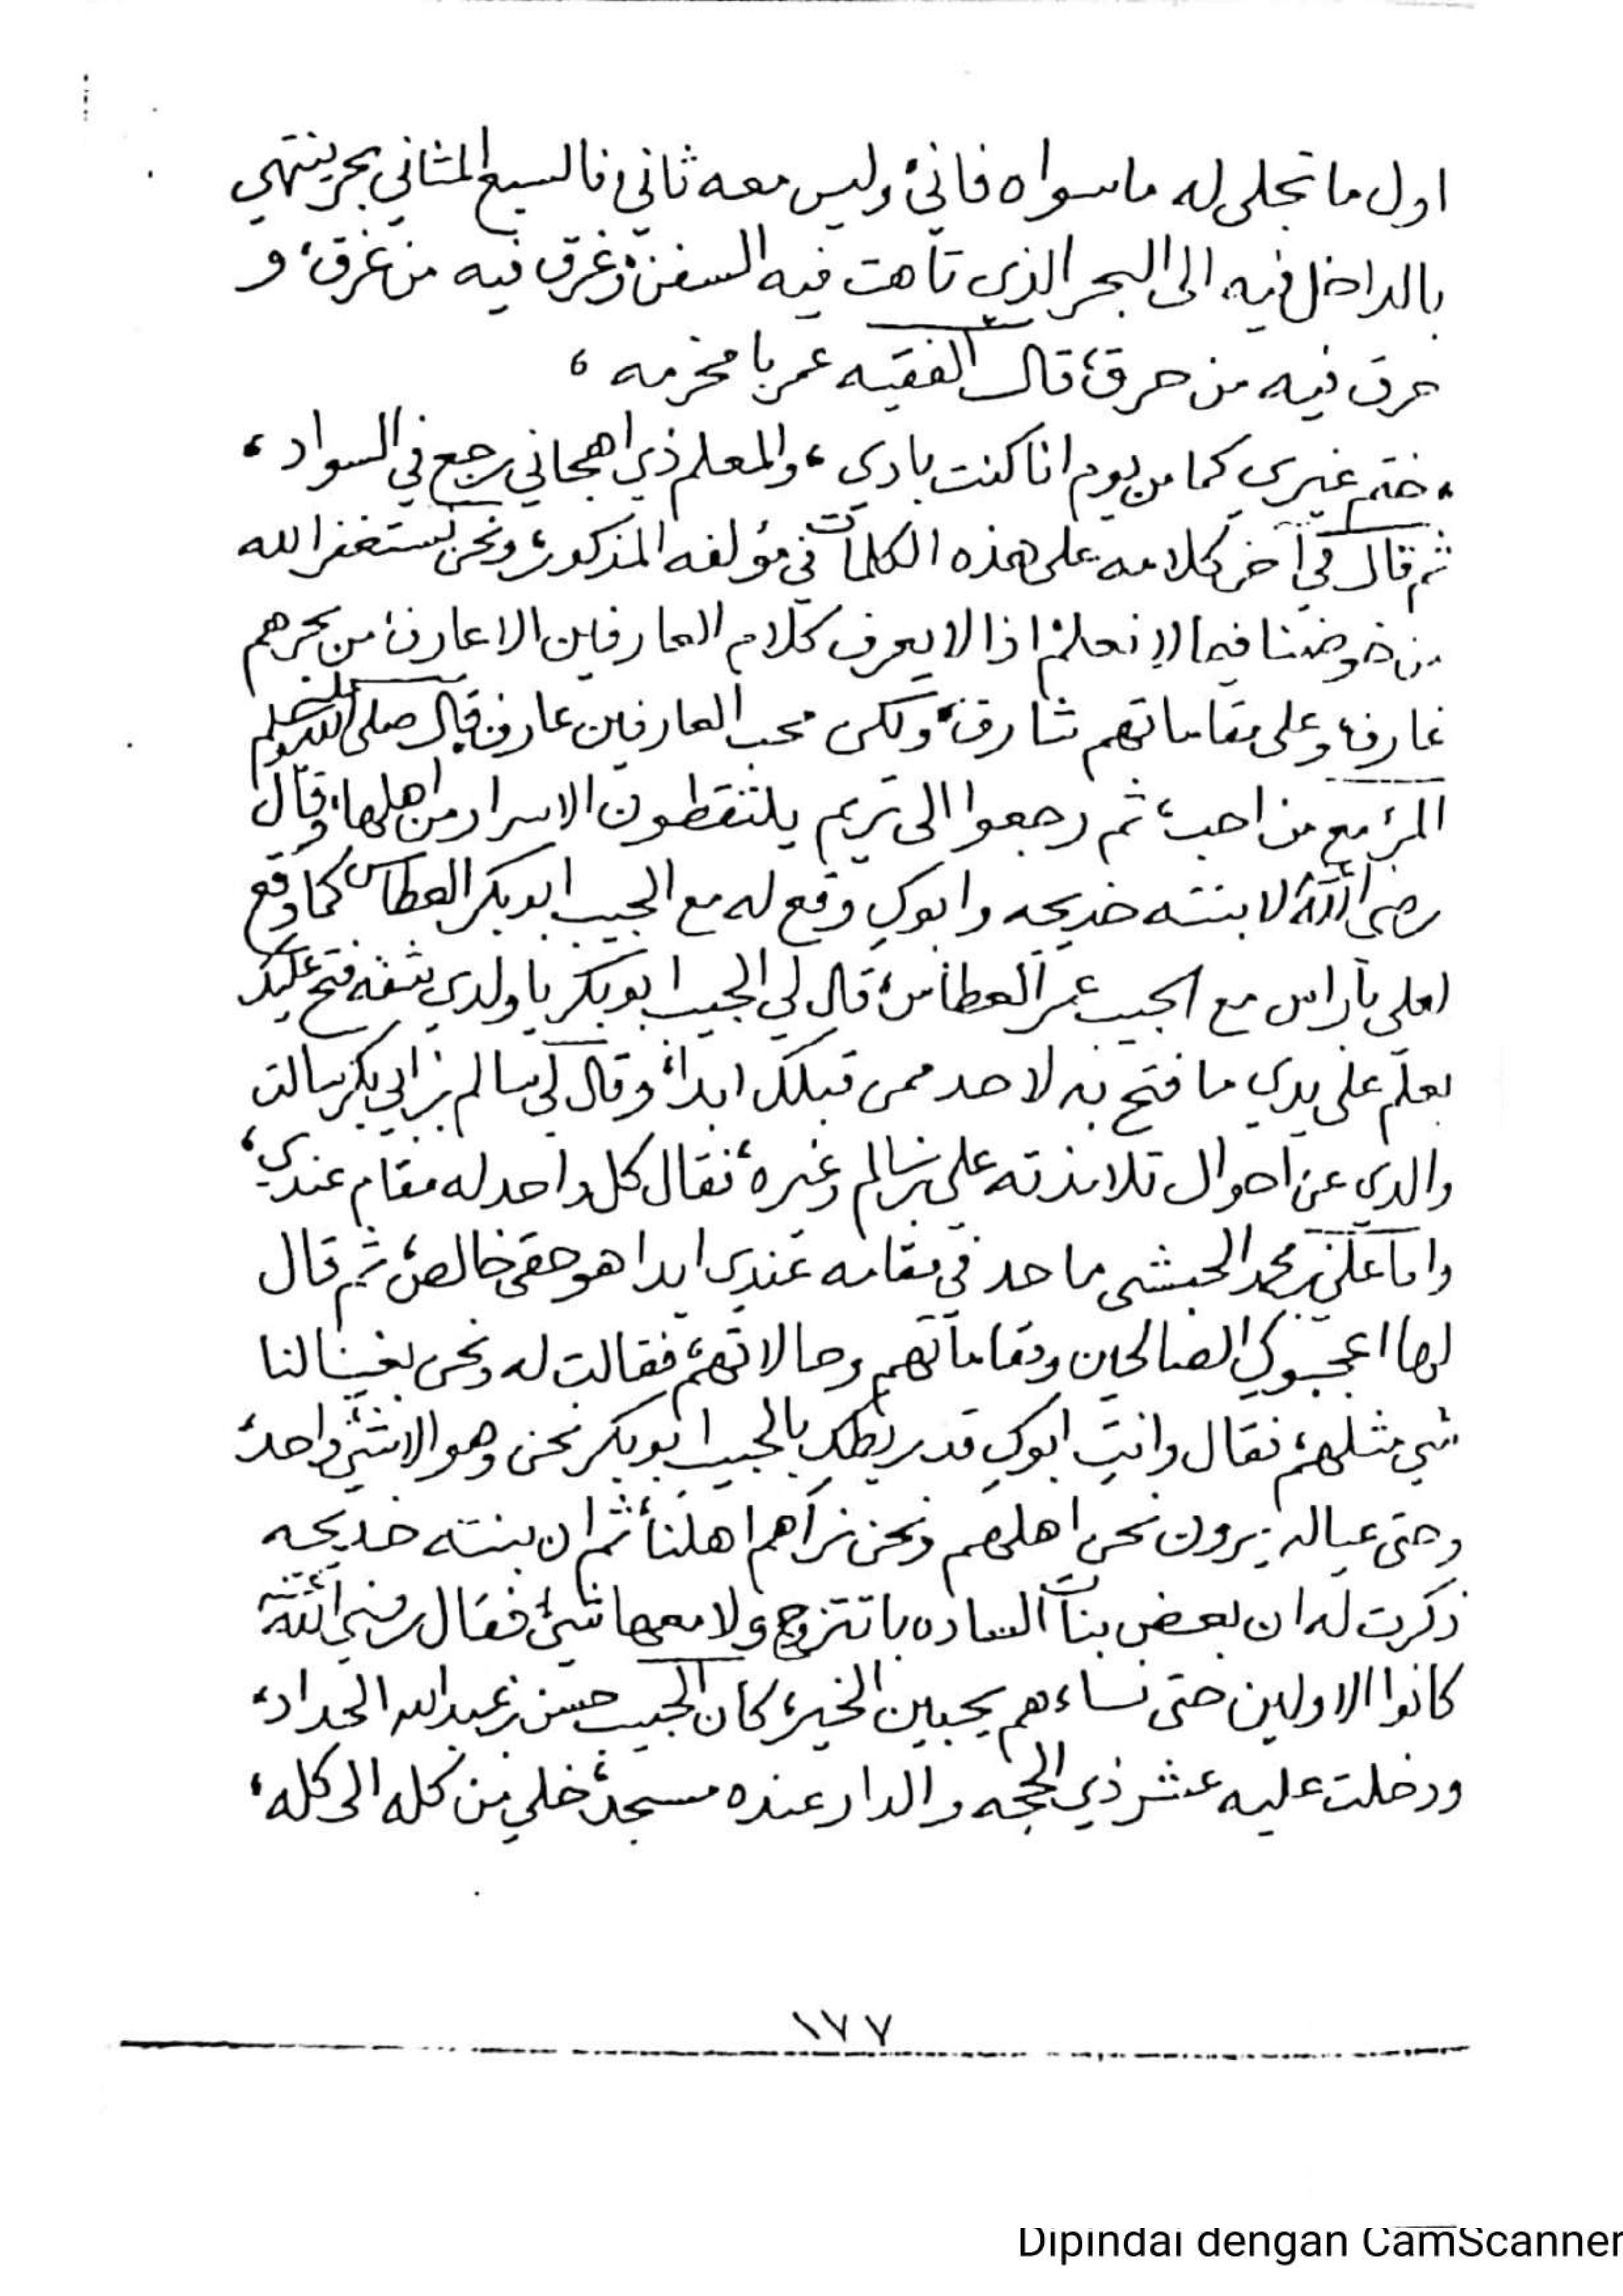 اول ما تجلى له ماسواه فاني، وليس معه ثاني، فالسبع المثاني بحر ينتهي
بالداخل فيه الى البحر الذي تاهت فيه السفن، وغرق فيه من غرق، و
حرق فيه من حرق، قال الفقيه عمر بامخرمه ،
، ختم غيري كما من يوم انا كنت بادي ، والمعلم ذي اهجاني رجع في السواد ،
ثم قال في آخر كلامه على هذه الكلمات في مؤلفه المذكور، ونحن نستغفر الله
من خوضنا فيما لا نعلم، اذا لا يعرف كلام العارفين الا عارف، من بحرهم
غارف، وعلى مقاماتهم شارف، ولكن محب العارفين عارف، قال صلى الله عليه وسلم
المرء مع من احب، ثم رجعوا الى تريم يلتقطون الاسرار من اهلها، وقال
رضي الله عنه لابنته خديجه وابوك وقع له مع الحبيب ابوبكر العطاس كما وقع
لعلي باراس مع الحبيب عمر العطاس، قال لي الحبيب ابوبكر يا ولدي شفه فتح عليك
بعلم على يدي ما فتح به لاحد ممن قبلك ابدا، وقال لي سالم بن ابي بكر سالت
والدي عن احوال تلامذته علي بن سالم وغيره، فقال كل واحد له مقام عندي،
واما علي بن محمد الحبشي ما حد في مقامه عندي ابدا هو حقي خالص، ثم قال
لها اعجبوك الصالحين ومقاماتهم وحالاتهم، فقالت له ونحن بغينا لنا
شي مثلهم، فقال وانتِ ابوكِ قد ربطك بالحبيب ابوبكر نحن وهو الا شي واحد،
وحتى عياله يرون نحن اهلهم ونحن نراهم اهلنا، ثم ان بنته خديجه
ذكرت له ان بعض بنات الساده باتتزوج ولا معها شي، فقال رضي الله عنه
كانوا الاولين حتى نساءهم يحبين الخير، كان الحبيب حسن بن عبدالله الحداد،
ودخلت عليه عشر ذي الحجه والدار عنده مسجد، خلي من كله الى كله،
١٧٧
Dipindai dengan CamScanner